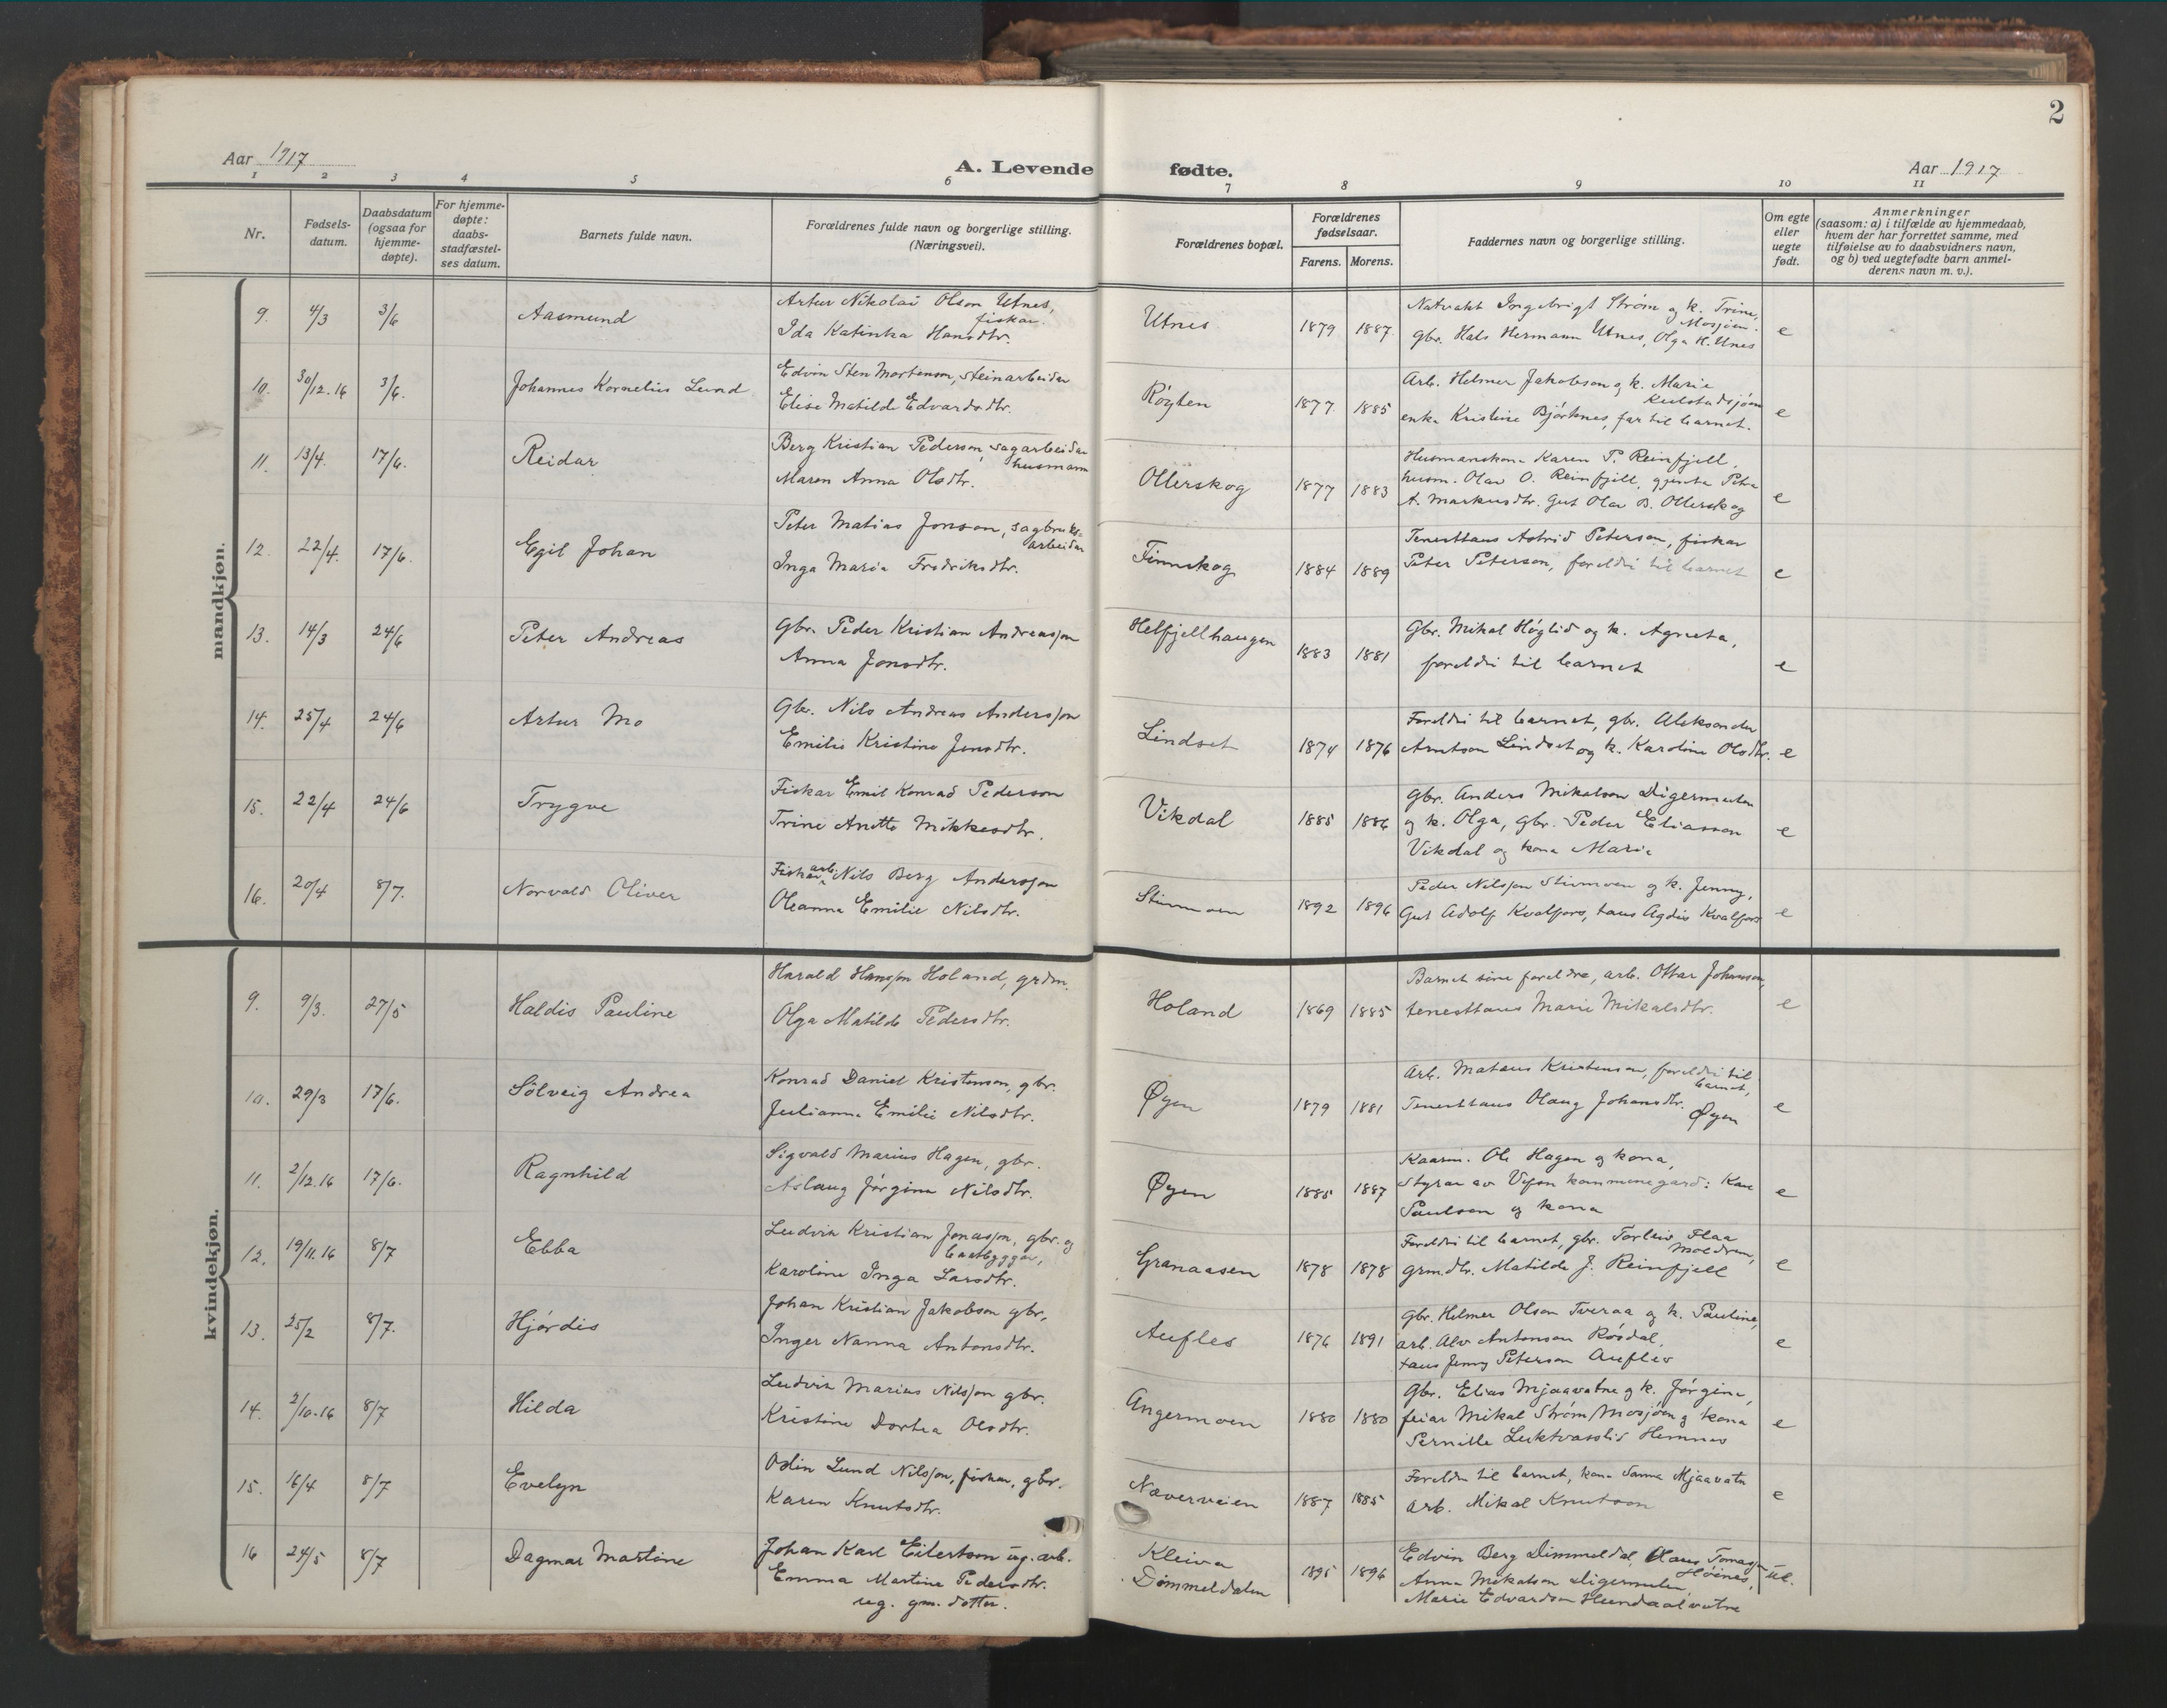 2
Aar 1917
A. Levende fødte.
Aar 1917
1 2 3 4 5 6 7 8 9 10 11
Nr.
Fødsels-
datum.
Daabsdatum
(ogsaa for
hjemme-
døpte).
For hjemme-
døpte:
daabs-
stadfæstel-
ses datum.
Barnets fulde navn.
Forældrenes fulde navn og borgerlige stilling.
(Næringsvei).
Forældrenes bopæl.
Forældrenes
fødselsaar.
Farens. Morens.
Faddernes navn og borgerlige stilling.
Om egte
eller
uegte
født.
Anmerkninger
(saasom: a) i tilfælde av hjemmedaab,
hvem der har forrettet samme, med
tilføielse av to daabsvidners navn,
og b) ved uegtefødte barn anmel-
derens navn m. v.).
mandkjøn.
9. 4/3 3/6 Aasmund
Artur Nikolai Olson Utnes,
fiskar.
Ida Katinka Hansdtr.
Utnes 1879 1887
Natvakt Ingebrigt Strøm og k. Trine,
Mosjøen.
gbr. Hals Hermann Utnes, Olga H. Utnes
e
10. 30/12.16 3/6. Johannes Kornelius Lund
Edvin Sten Mortenson, steinarbeidar
Elise Matilde Edvardsdtr.
Røyten 1877 1885
Arb. Helmer Jakobson og k. Marie
Kulstadsjøen
enke Kristine Bjørknes, far til barnet.
e
11. 13/4. 17/6. Reidar
Berg Kristian Pederson, sagarbeidar
husmann
Maren Anna Olsdtr.
Ollerskog 1877 1883
Husmanskona Karen P. Reinfjell,
husm. Olav O. Reinfjell, gjenta Petra
A. Markusdtr. Gut Olav B. Ollerskog
e
12. 22/4. 17/6. Egil Johan
Peter Matias Jonson, sagbruks-
arbeidar
Inga Maria Fredriksdtr.
Finnskog 1884 1889
Tenesttaus Astrid Peterson, fiskar
Peter Peterson, foreldri til barnet
e
13. 14/3 24/6 Peter Andreas
Gbr. Peder Kristian Andreasson
Anna Jonsdtr.
Helfjellhaugen 1883 1881
Gbr. Mikal Høglid og k. Agneta,
foreldri til barnet
e
14. 25/4 24/6 Artur Mo
Gbr. Nils Andreas Andersson
Emilie Kristine Jensdtr.
Lindset 1874 1876
Foreldri til barnet, gbr. Aleksander
Arntson Lindset og k. Karoline Olsdtr.
e
15. 22/4 24/6 Trygve
Fiskar Emil Konrad Pederson
Trine Anette Mikkesdtr.
Vikdal 1885 1886
Gbr. Anders Mikalson Digermulen
og k. Olga, gbr. Peder Eliasson
Vikdal og kona Maria
e
16. 20/4 8/7. Norvald Oliver
Fiskar arb. Nils Berg Andersson
Oleanna Emilie Nilsdtr.
Stinmoen 1892 1896
Peder Nilsson Stinmoen og k. Jenny,
Gut Adolf Kvalfors, taus Agdis Kvalfors
e
kvindekjøn.
9. 9/3. 27/5 Haldis Pauline
Harald Hansson Holand, grdm.
Olga Matilde Pedersdtr.
Holand 1869 1885
Barnet sine foreldre, arb. Ottar Johanson,
tenesttaus Marie Mikalsdtr.
e
10. 29/3 17/6. Sölveig Andrea
Konrad Daniel Kristenson, gbr.
Julianna Emilie Nilsdtr.
Øyen 1879 1881
Arb. Mataus Kristenson, foreldri til
barnet,
Tenesttaus Olaug Johansdtr. Øyen
e
11. 2/12.16 17/6. Ragnhild
Sigvald Marius Hagen, gbr.
Aslaug Jørgine Nilsdtr.
Øyen 1885 1887
Kaarm. Ole Hagen og kona,
styrar av Vefsn kommunegard: Kare
Paulson og kona
e
12. 19/11.16 8/7 Ebba
Ludvik Kristian Jonasson, gbr. og
baatbyggar,
Karoline Inga Larsdtr.
Granaasen 1878 1878
Foreldri til barnet, gbr. Torleiv Flaa
Moldrem,
grmdtr. Matilde J. Reinfjell
e
13. 25/2 8/7. Hjørdis
Johan Kristian Jakobson gbr,
Inger Nanna Antonsdtr.
Aufles 1876 1891
Gbr. Helmer Olson Tveraa og k. Pauline,
arb. Alv Antonson Røsdal,
taus Jenny Peterson Aufles
e
14. 2/10.16 8/7 Hilda
Ludvik Marius Nilsson gbr.
Kristine Dortea Olsdtr.
Angermoen 1880 1880
Gbr. Elias Mjaavatne og k. Jørgine,
feiar Mikal Strøm Mosjøen og kona
Pernille Luktvasslid Hemnes
e
15. 16/4 8/7 Evelyn
Odin Lund Nilsson, fiskar, gbr.
Karen Knutsdtr.
Næverveien 1887 1885
Foreldri til barnet, kona Sanna Mjaavatn
arb. Mikal Knutson
e
16 24/5 8/7 Dagmar Martine
Johan Karl Eilertson ug. arb.
Emma Martine Pedersdtr.
ug. gm. dotter.
Kleiva
Dømmeldalen
1895 1896
Edvin Berg Dimmeldal, Klaus Tomasson
Høines,
Anna Mikalson Digermulen,
Marie Edvardson Hundaalvatne
ue.